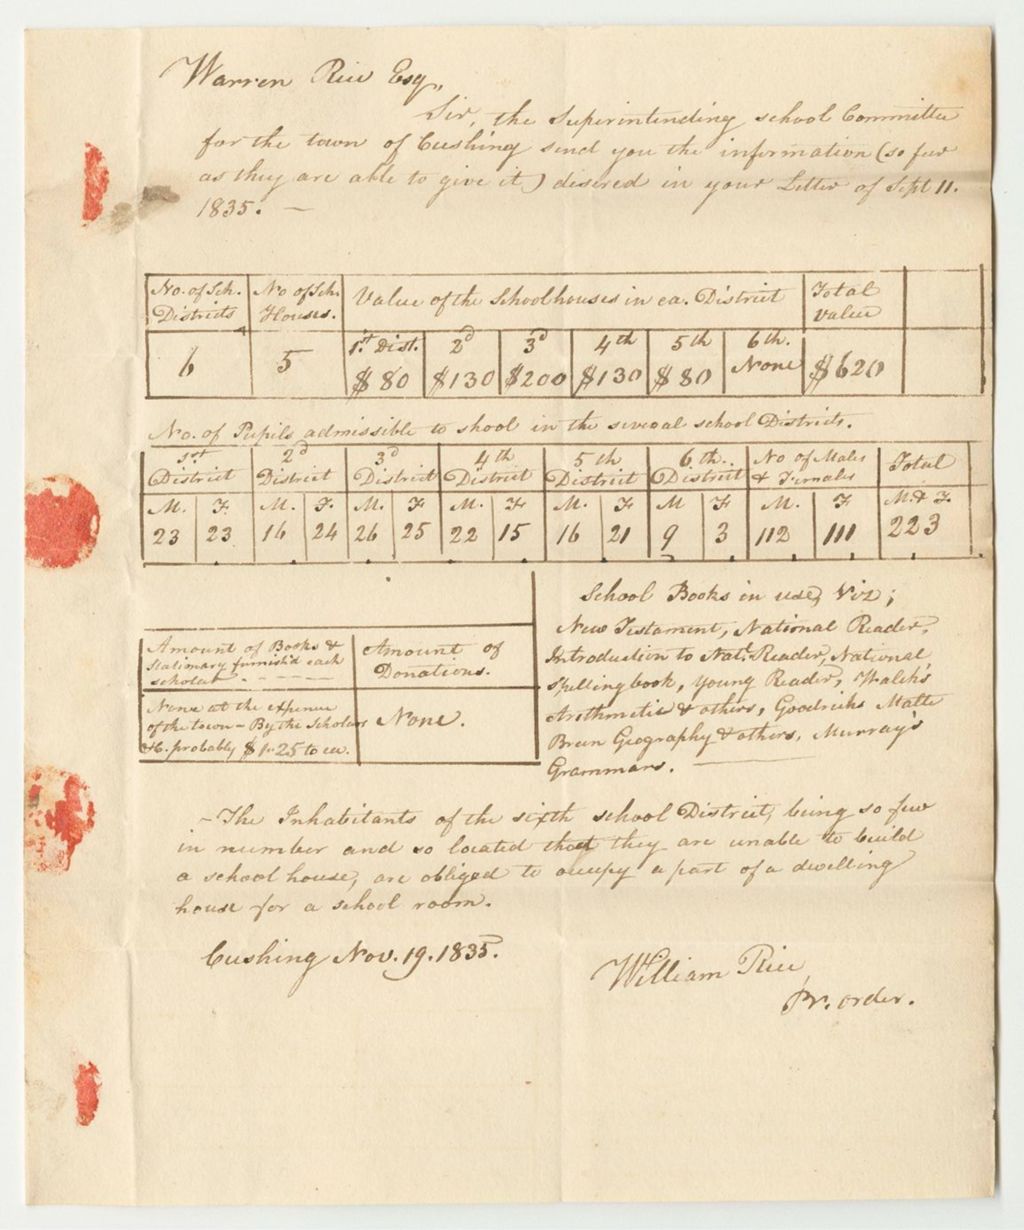 Warren Rice Esq.
Sir, the Superintending school Committee
for the town of Cushing send you the information (so far
as they are able to give it) disired in your Letter of Sept 11.
1835. —
No. of Sch. Districts | No of Sch. Houses. | Value of the Schoolhouses in ea. District | Total Value
6 | 5 | 1st Dist. $80 | 2d $130 | 3d $200 | 4th $130 | 5th $80 | 6th. None | $620
No. of Pupils admissible to shool in the several school Districts.
1st District | 2d District | 3d District | 4th District | 5th District | 6th. District | No of Males & Females | Total
M. | F. | M. | F. | M. | F | M. | F | M. | F | M | F | M. | F | M. & F.
23 | 23 | 16 | 24 | 26 | 25 | 22 | 15 | 16 | 21 | 9 | 3 | 112 | 111 | 223
Amount of Books &
Stationary furnish'd each
scholar - - - - -
Amount of
Donations.
None at the expence
of the town - By the Scholars
&c. probably $1.25 to ea.
None.
School Books in use, Viz;
New Testament, National Reader,
Introduction to Natl. Reader, National
spelling book, Young Reader, Walsh's
Arithmetic & others, Goodrichs Malte
Brun Geography & others, Murray's
Grammars. —
- The Inhabitants of the sixth school District, being so few
in number and so located that they are unable to build
a school house, are obliged to occupy a part of a dwelling
house for a school room.
Cushing Nov. 19. 1835.
William Rice,
Pr. order.